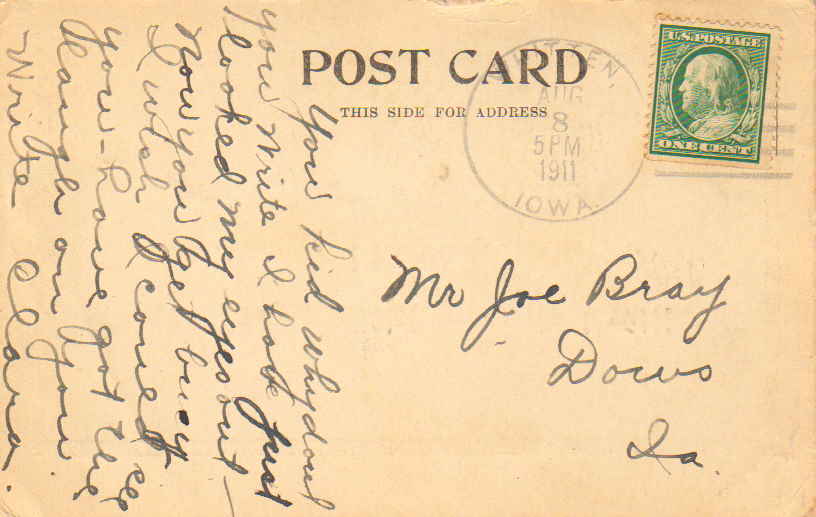 POST CARD
THIS SIDE FOR ADDRESS
U.S. POSTAGE
ONE CENT
AUG
8
5 PM
1911
IOWA
Mr Joe Bray
Dows
Ia.
You kid why dont
you write I have just
looked my eyes out —
Now you get busy
I wish I could see
you - have got the
laugh on you
Write Clara.